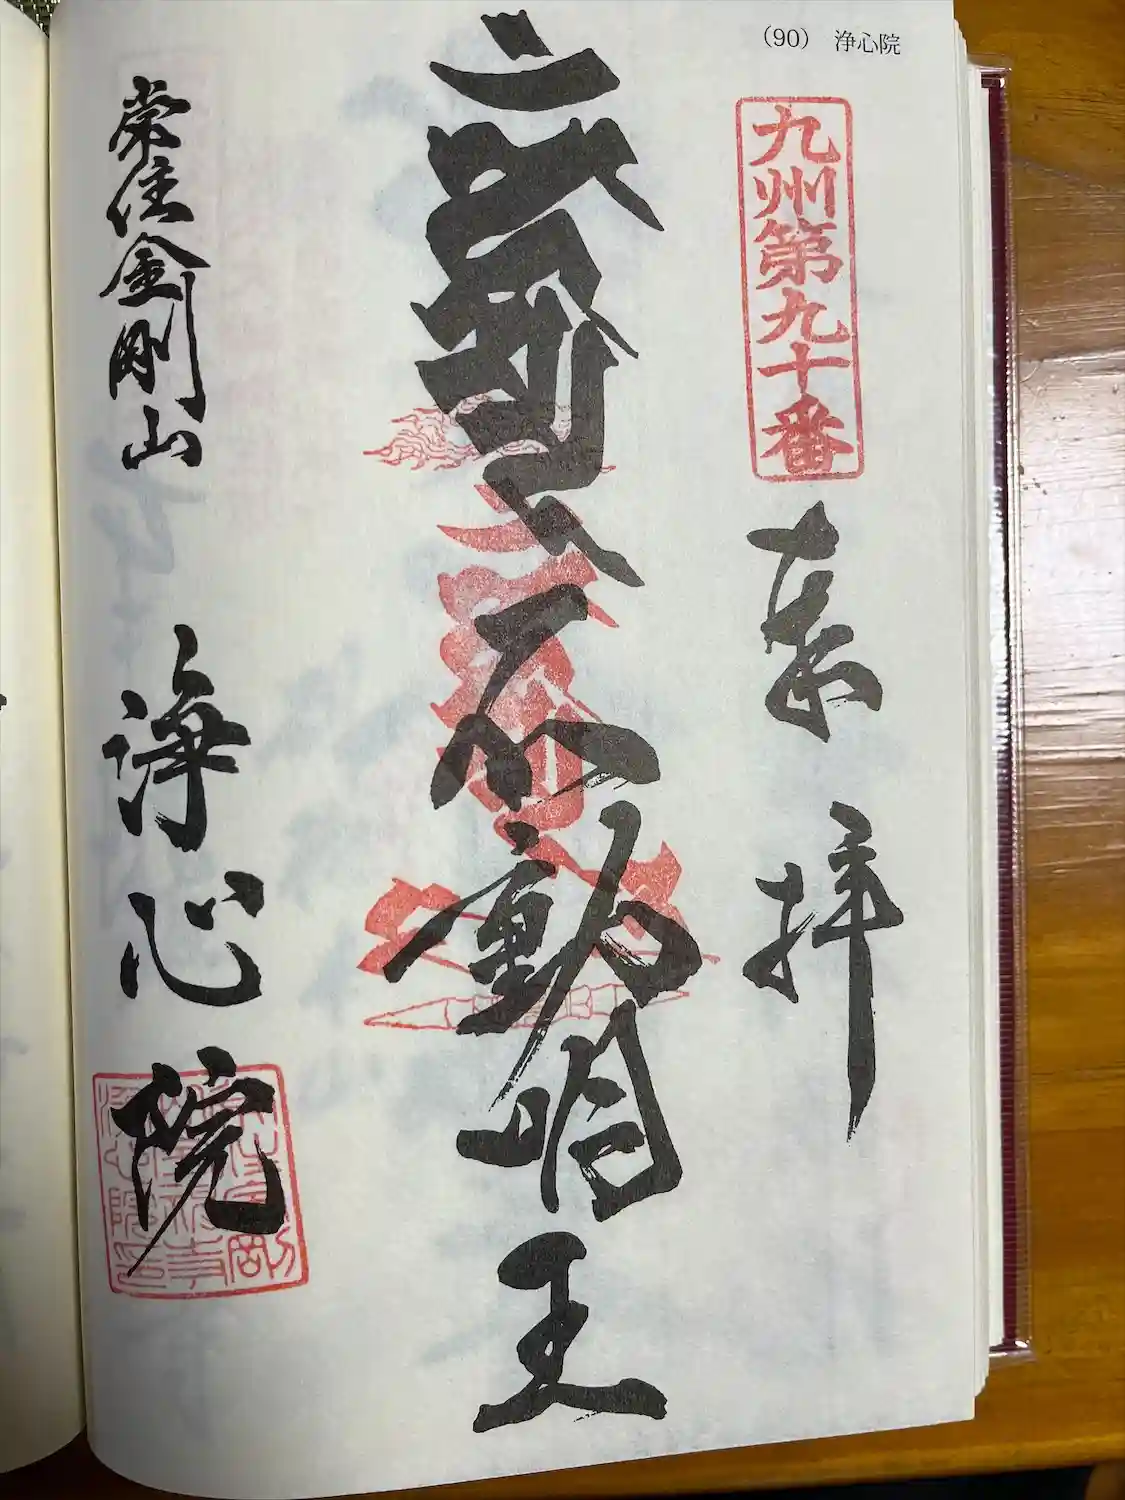 （90） 浄心院
九州第九十番
奉拝
不動明王
常住金剛山 浄心院